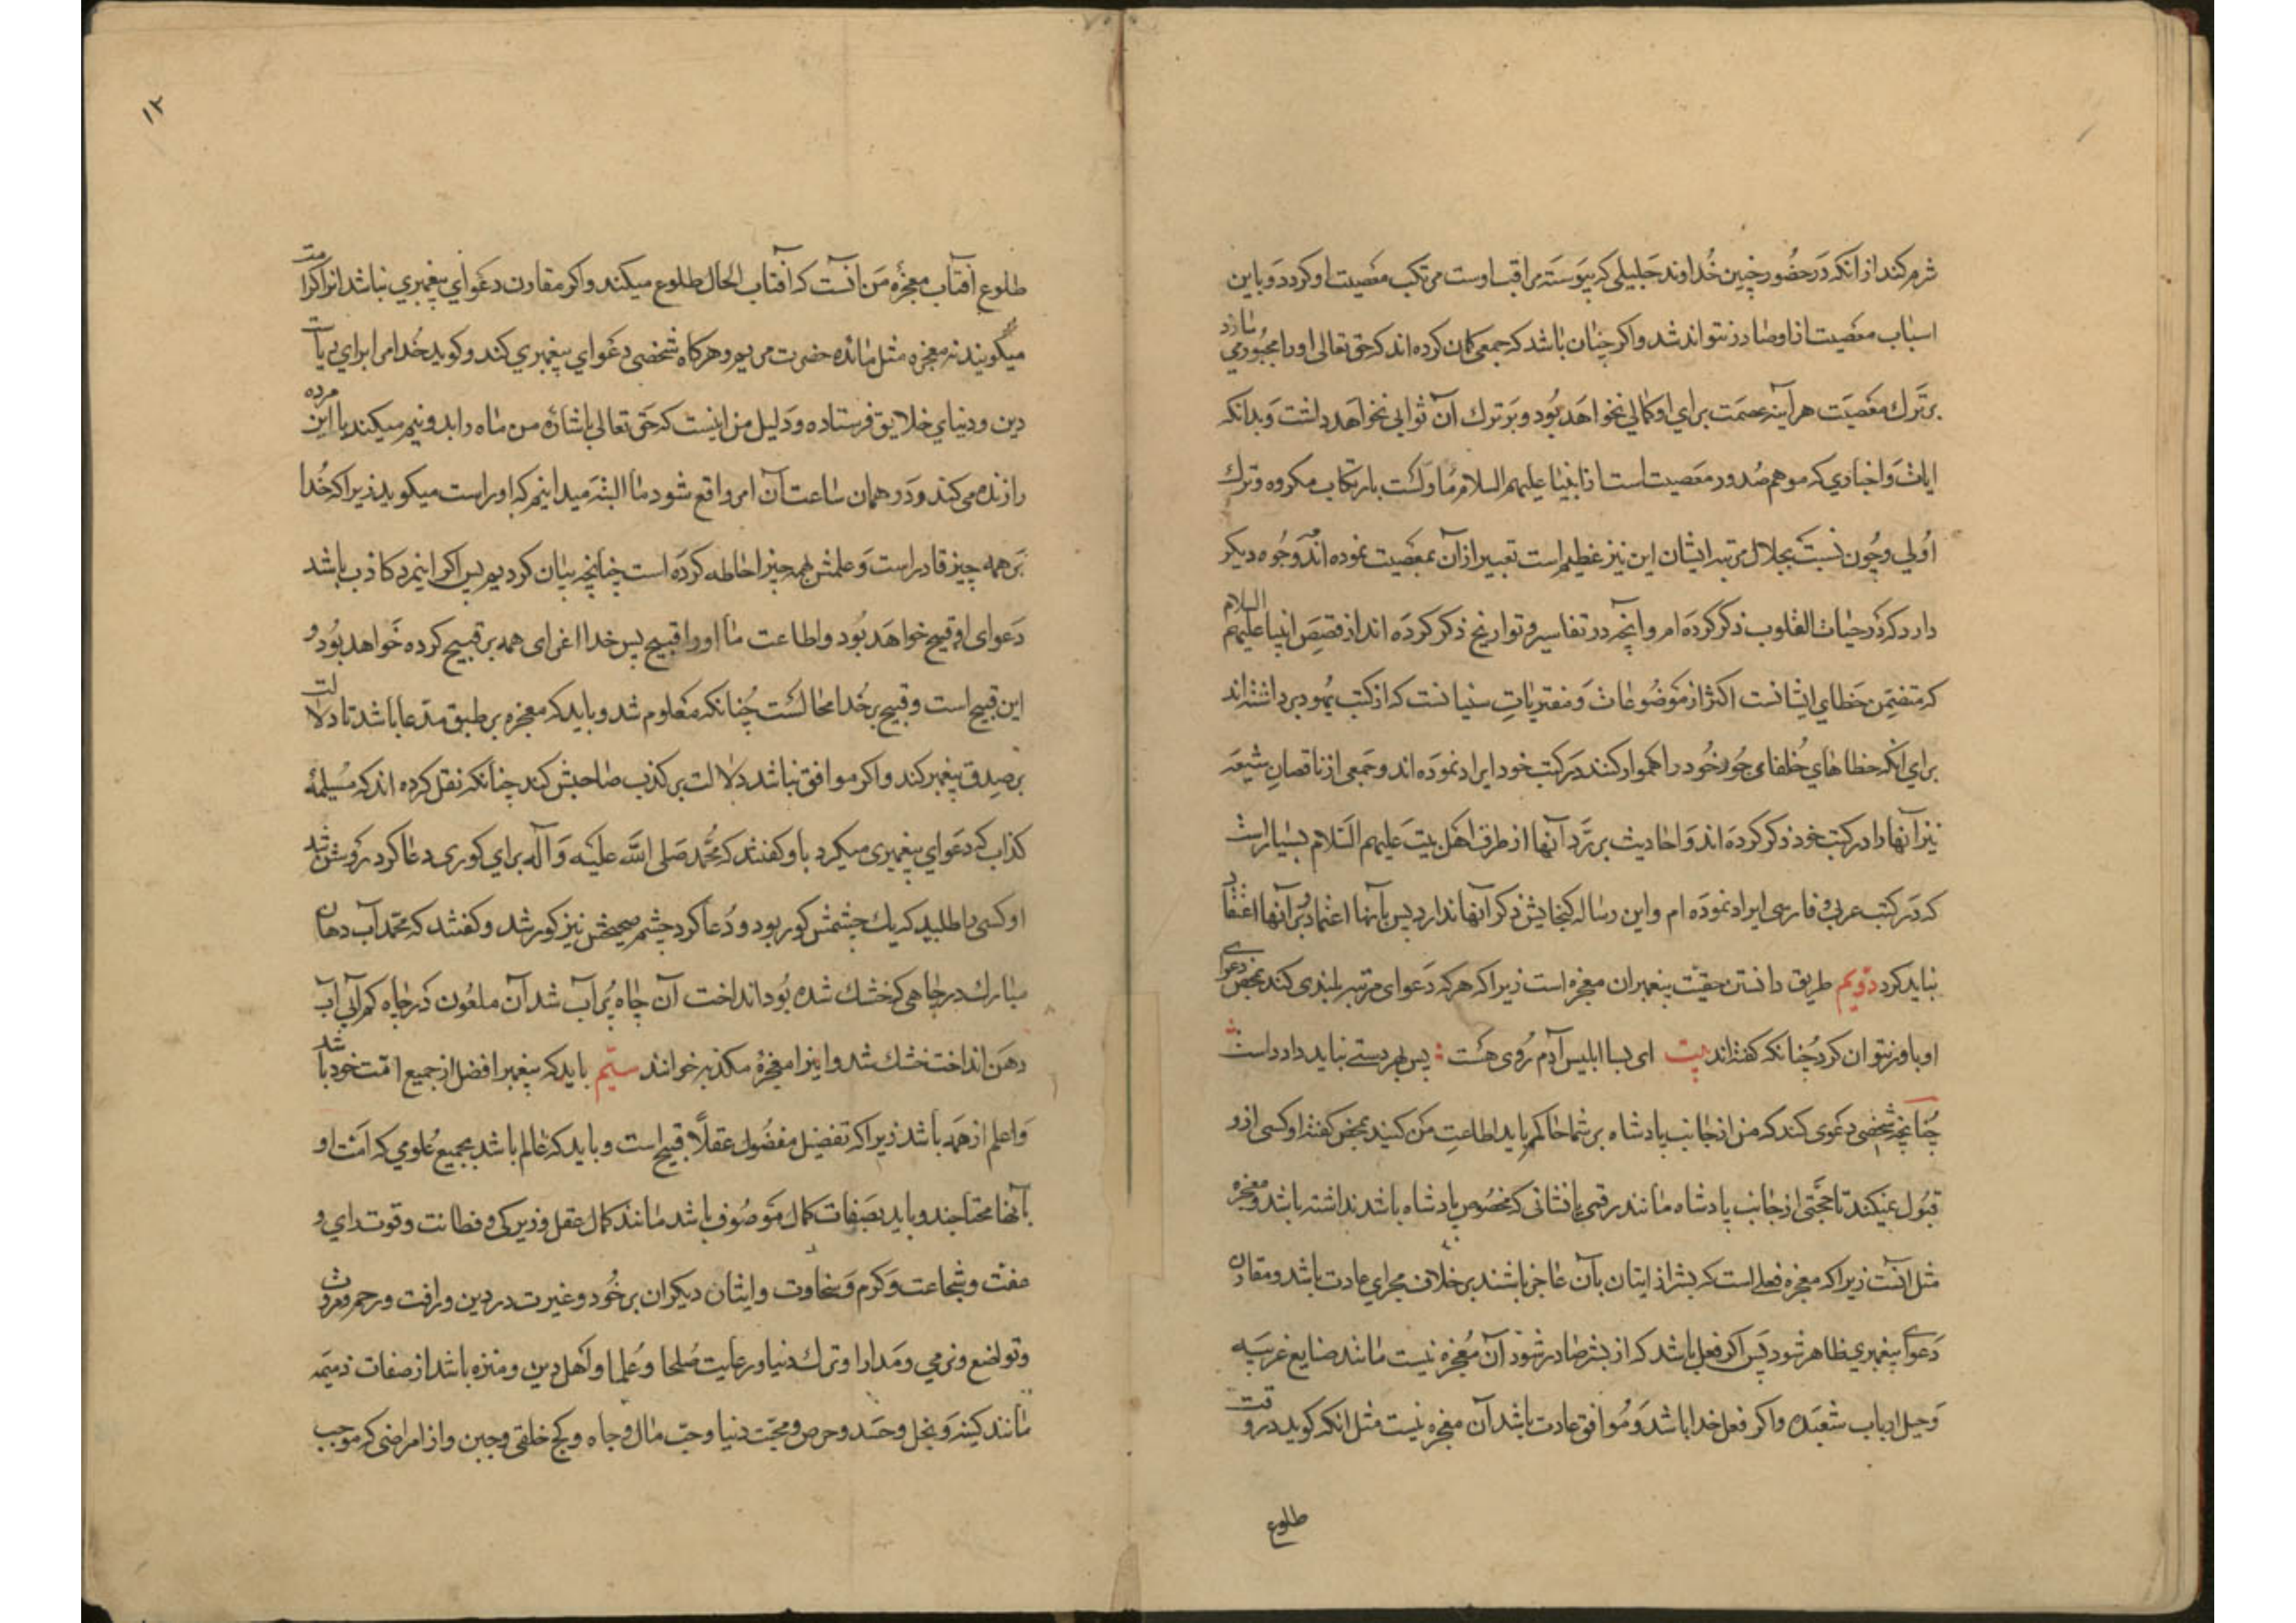 شرم کند از انکه در حضور چنین خداوند جلیلی که پیوسته مراقب اوست مرتکب معصیت او کردد و باین
اسباب معصیت از او صادر نتواند شد و اکر چنان باشد که جمعی کمان کرده اند که حق تعالی او را مجبور می سازد
بر ترک معصیت هر آینه عصمت برای او کمالی نخواهد بود و بر ترک آن ثوابی نخواهد داشت و بدانکه
ایات و اخباری که موهم صدور معصیت است از انبیا علیهم السلام ماولست بارتکاب مکروه و ترک
اولی و چون نسبت بجلال مرتبه ایشان این نیز عظیم است تعبیر از آن بمعصیت نموده اند و وجوه دیکر
دارد که در حیات القلوب ذکر کرده ام و انچه در تفاسیر و تواریخ ذکر کرده اند از قصص انبیا علیهم السلام
که متضمن خطای ایشانست اکثر از موضوعات و مفتریات سنیانست که از کتب یهود برداشته اند
برای انکه خطاهای خلفای جور خود را هموار کنند در کتب خود ایراد نموده اند و جمعی از ناقصان شیعه
نیز آنها را در کتب خود ذکر کرده اند و احادیث بر رد آنها از طرف اهل بیت علیهم السلام بسیار است
که در کتب عربی و فارسی ایراد نموده ام و این رساله کنجایش ذکر آنها ندارد پس بآنها اعتماد و بر آنها اعتقاد
نباید کرد دویم طریق دانستن حقیت پیغمبران معجزه است زیرا که هر که دعوای مرتبه بلندی کند بمحض دعوای
او باور نتوان کرد چنانکه کفته اند بیت ای بسا ابلیس آدم روی هست پس بهر دستی نباید داد دست
چنانچه شخصی دعوی کند که من از جانب پادشاه بر شما حاکم باید اطاعت من کنید بمحض کفته او کسی ازو
قبول نمیکند تا حجتی از جانب پادشاه مانند رقمی یا نشانی که مخصوص پادشاه باشد نداشته باشد و معجزه
مثل انست زیرا که معجزه فعلی است که بشر از اتیان بآن عاجز باشند بر خلاف مجرای عادت باشد و مقارن
دعوای پیغمبری ظاهر شود پس اکر فعل باشد که از بشر صادر شود آن معجزه نیست مانند صنایع غریبه
و حیل ارباب شعبده و اکر فعل خدا باشد و موافق عادت باشد آن معجزه نیست مثل انکه کوید در وقت
طلوع
۱۲
طلوع آفتاب معجزه من آنست که آفتاب الحال طلوع میکند و اکر مقارن دعوای پیغمبری نباشد انرا کرامت
میکویند نه معجزه مثل مائده حضرت مریم و هرکاه شخصی دعوای پیغمبری کند و کوید خدا مرا برای ریاست
دین و دنیای خلایق فرستاده و دلیل من اینست که حق تعالی باشاره من ماه را بدو نیم میکند یا این مرده
را زنده می کند و در همان ساعت آن امر واقع شود ما البته میدانیم که او راست میکوید زیرا که خدا
بر همه چیز قادر است و علمش بهمه چیز احاطه کرده است چنانچه بیان کردیم پس اکر اینمرد کاذب باشد
دعوای او قبیح خواهد بود و اطاعت ما او را قبیح پس خدا اغرای همه بر قبیح کرده خواهد بود و
این قبیح است و قبیح بر خدا محالست چنانکه معلوم شد و باید که معجزه بر طبق مدعا باشد تا دلالت
بر صدق پیغمبر کند و اکر موافق نباشد دلالت بر کذب صاحبش کند چنانکه نقل کرده اند که مسیلمه
کذاب که دعوای پیغمبری میکرد باو کفتند که محمد صلی الله علیه و آله برای کوری دعا کرد روشن شد
او کسی را طلبید که یک چشمش کور بود و دعا کرد چشم صحیحش نیز کور شد و کفتند که محمد آب دهان
مبارک در چاهی که خشک شده بود انداخت آن چاه پر آب شد آن ملعون در چاه کم آبی آب
دهن انداخت خشک شد و اینرا معجزه مکذبه خوانند سیّم باید که پیغمبر افضل از جمیع امّت خود باشد
و اعلم از همه باشد زیرا که تفضیل مفضول عقلاً قبیح است و باید که عالم باشد بجمیع علومی که امت او
بآنها محتاجند و باید بصفات کمال موصوف باشد مانند کمال عقل و زیرکی و فطانت و قوت رای و
عفت و شجاعت و کرم و سخاوت و ایثار دیکران بر خود و غیرت در دین و رافت و رحم و مروت
و تواضع و نرمی و مدارا و ترک دنیا و رعایت صلحا و علما و اهل دین و منزه باشد از صفات ذمیمه
مانند کینه و بخل و حسد و حرص و محبت دنیا و حب مال و جاه و کج خلقی و جبن و از امراضی که موجب